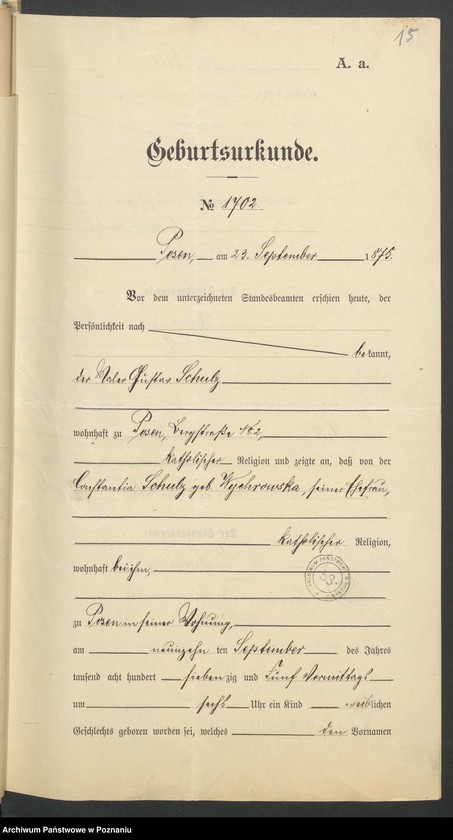 15
A. a.
Geburtsurkunde.
№ 1702
Posen, am 23. September 1875.
Vor dem unterzeichneten Standesbeamten erschien heute, der
Persönlichkeit nach
bekannt,
der Maler Gustav Schulz
wohnhaft zu Posen, Bergstraße
katholischer Religion und zeigte an, daß von der
Constantia Schulz geb. Wychrowska, seiner Ehefrau,
katholischer Religion,
wohnhaft bei ihm,
zu Posen in seiner Wohnung,
am neunzehn ten September des Jahres
tausend acht hundert siebenzig und fünf Vormittags
um sechs Uhr ein Kind weiblichen
Geschlechts geboren worden sei, welches den Vornamen
Archiwum Państwowe w Poznaniu